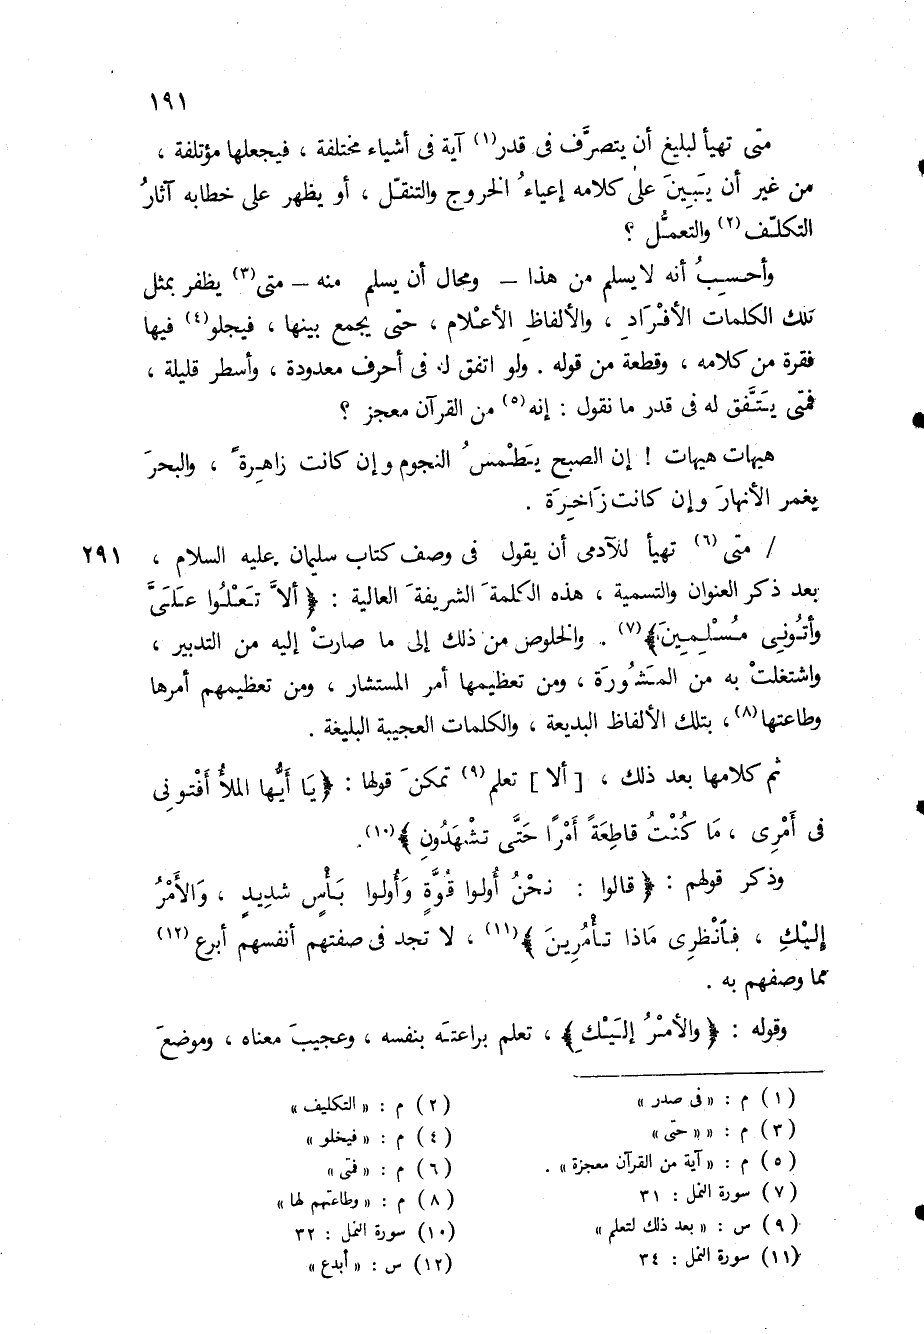 ١٩١
متى تهيأ لبليغ أن يتصرَّف فى قدر(١) آية فى أشياء مختلفة ، فيجعلها مؤتلفة ،
من غير أن يَبِينَ على كلامه إعياءُ الخروج والتنقـّل ، أو يظهر على خطابه آثارُ
التكلـّف(٢) والتعمـُّل ؟
وأحسِبُ أنه لا يسلم من هذا – ومحال أن يسلم منه – متى(٣) يظفر بمثل
تلك الكلمات الأفـْرَادِ ، والألفاظِ الأعـْلام ، حتّى يجمع بينها ، فيجلو(٤) فيها
فقرة من كلامه ، وقطعة من قوله . ولو اتفق له فى أحرف معدودة ، وأسطر قليلة ،
فمتى يَتَّفق له فى قدر ما نقول : إنه(٥) من القرآن معجز ؟
هيهات هيهات ! إن الصبح يَطْمسُ النجوم وإن كانت زاهِرةً ، والبحرَ
يغمر الأنهارَ وإن كانت زَاخِرَة .
٢٩١ / متى(٦) تهيأ للآدمى أن يقول فى وصف كتاب سليمان عليه السلام ،
بعد ذكر العنوان والتسمية ، هذه الكلمةَ الشريفةَ العالية : ﴿ ألاَّ تَعْلُوا عَلَىَّ
وأتُونِى مُسْلِمِينَ﴾(٧) . والخلوص من ذلك إلى ما صارتْ إليه من التدبير ،
واشتغلتْ به من المَشُورَة ، ومن تعظيمها أمر المستشار ، ومن تعظيمهم أمرها
وطاعتها(٨)، بتلك الألفاظ البديعة ، والكلمات العجيبة البليغة .
ثم كلامها بعد ذلك ، [ ألا ] تعلم(٩) تمكنَ قولها : ﴿يَا أَيُّها الملأُ أَفْتونِى
فى أَمْرِى ، مَا كُنْتُ قاطِعَةً أَمْرًا حَتَّى تشْهَدُونِ ﴾(١٠).
وذكر قولهم : ﴿ قالوا : نحْنُ أُولوا قُوَّةٍ وَأُولوا بَأْسٍ شدِيدٍ ، وَالأَمْرُ
إِليْكِ ، فانْظرِى مَاذا تأْمُرِينَ ﴾(١١) ، لا تجد فى صفتهم أنفسهم أبرع(١٢)
مما وصفهم به .
وقوله : ﴿ والأمْرُ إليْكِ ﴾ ، تعلم براعتَه بنفسه ، وعجيبَ معناه ، وموضعَ
(١) م : « فى صدر » (٢) م : « التكليف »
(٣) م : « « حتى » (٤) م : « فيخلو »
(٥) م : « آية من القرآن معجزة » . (٦) م : « فتى »
(٧) سورة النمل : ٣١ (٨) م : « وطاعتهم لها »
(٩) س : « بعد ذلك لتعلم » (١٠) سورة النمل : ٣٢
(١١) سورة النمل : ٣٤ (١٢) س : « أبدع »